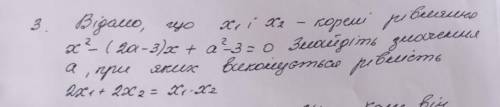 3. Відомо, що x₁ і x₂ - корені рівняння
x² - (2a-3)x + a² - 3 = 0 Знайдіть значення
a, при яких виконується рівність
2x₁ + 2x₂ = x₁ · x₂